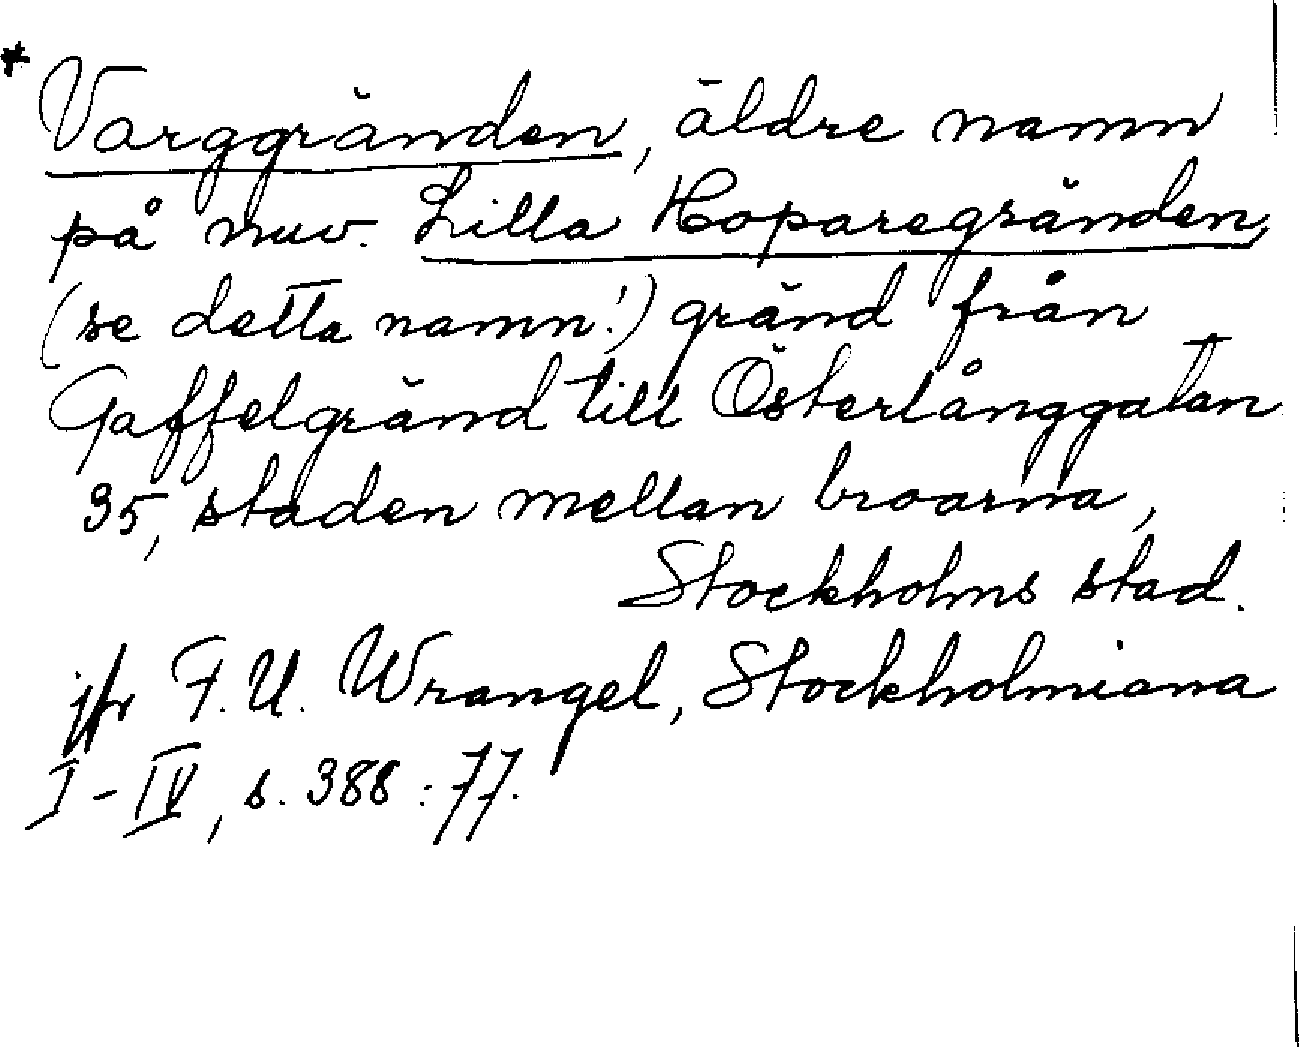 * Varggränden, äldre namn
på nuv. Lilla Hoparegränden,
(se detta namn!) gränd från
Gaffelgränd till Österlånggatan
35, staden mellan broarna,
Stockholms stad.
jfr F. U. Wrangel, Stockholmiana
I-IV, s. 388:77.